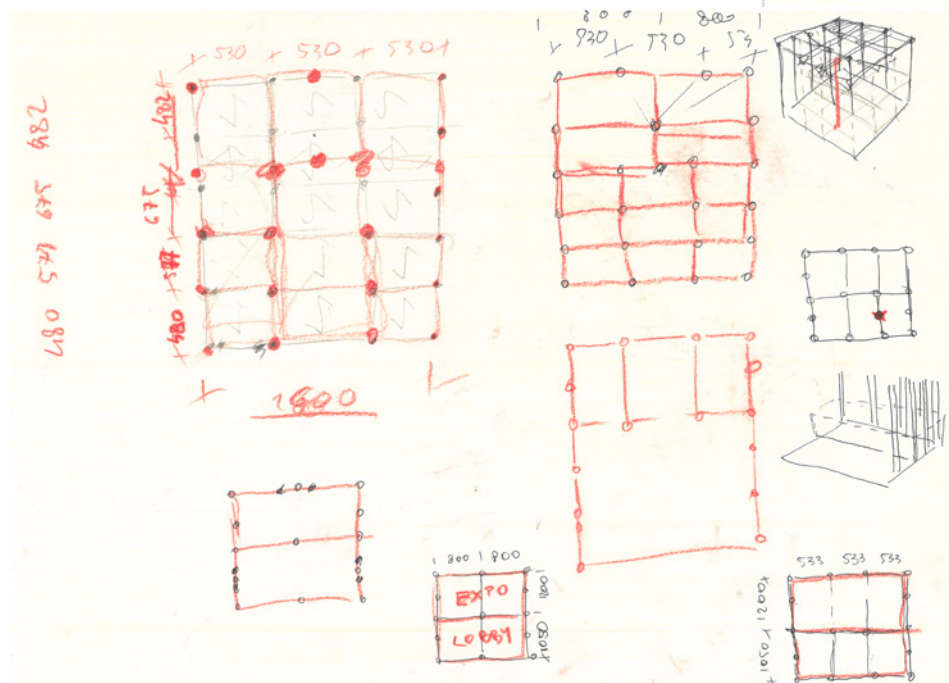 530 530 530
482
675
577
480
480 577 675 482
1600
800 800
530 530
800 800
EXPO
LOBBY
1050
533 533 533
1200
1050